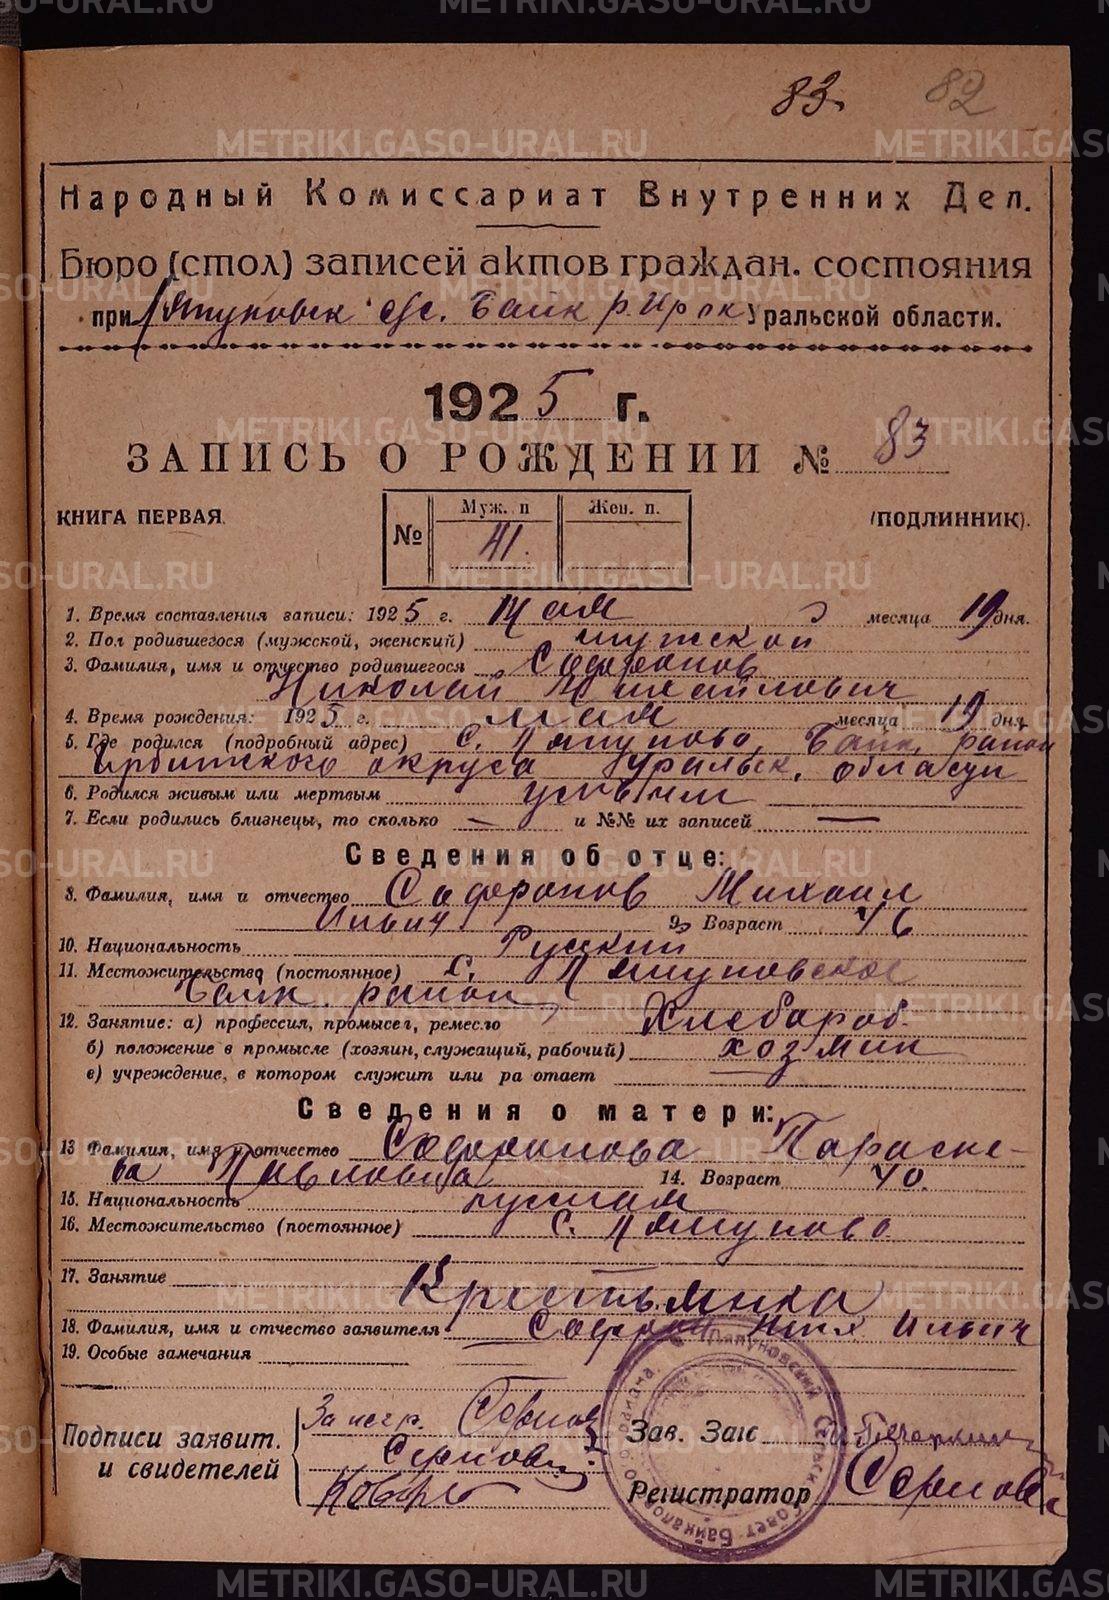 83. 82
Народный Комиссариат Внутренних Дел.
Бюро (стол) записей актов граждан. состояния
при Ляпуновск с/с. Байк р. Ирок Уральской области.
1925 г.
ЗАПИСЬ О РОЖДЕНИИ № 83
КНИГА ПЕРВАЯ. № Муж. п 41. Жен. п. (ПОДЛИННИК).
1. Время составления записи: 1925 г. мая месяца 19 дня.
2. Пол родившегося (мужской, женский) мужской
3. Фамилия, имя и отчество родившегося Сафронов
Николай Михайлович
4. Время рождения: 1925 г. мая месяца 19 дня.
5. Где родился (подробный адрес) С. Ляпуново, Байк. район
Ирбитского округа Уральск. области
6. Родился живым или мертвым
7. Если родились близнецы, то сколько — и №№ их записей —
Сведения об отце:
8. Фамилия, имя и отчество Сафронов Михаил
Ильич 9. Возраст 46
10. Национальность Русский
11. Местожительство (постоянное) С. Ляпуновское
Байк. район
12. Занятие: а) профессия, промысел, ремесло Хлебороб.
б) положение в промысле (хозяин, служащий, рабочий) хозяин
в) учреждение, в котором служит или ра отает
Сведения о матери:
13 Фамилия, имя и отчество Сафронова Параске-
ва Павловна 14. Возраст 40.
15. Национальность русская
16. Местожительство (постоянное) С. Ляпуново
17. Занятие Крестьянка
18. Фамилия, имя и отчество заявителя Ильич
19. Особые замечания
Подписи заявит.
и свидетелей
Зав. Загс
Регистратор
Ляпуновский Сельск. Совет Байкаловского района
METRIKI.GASO-URAL.RU